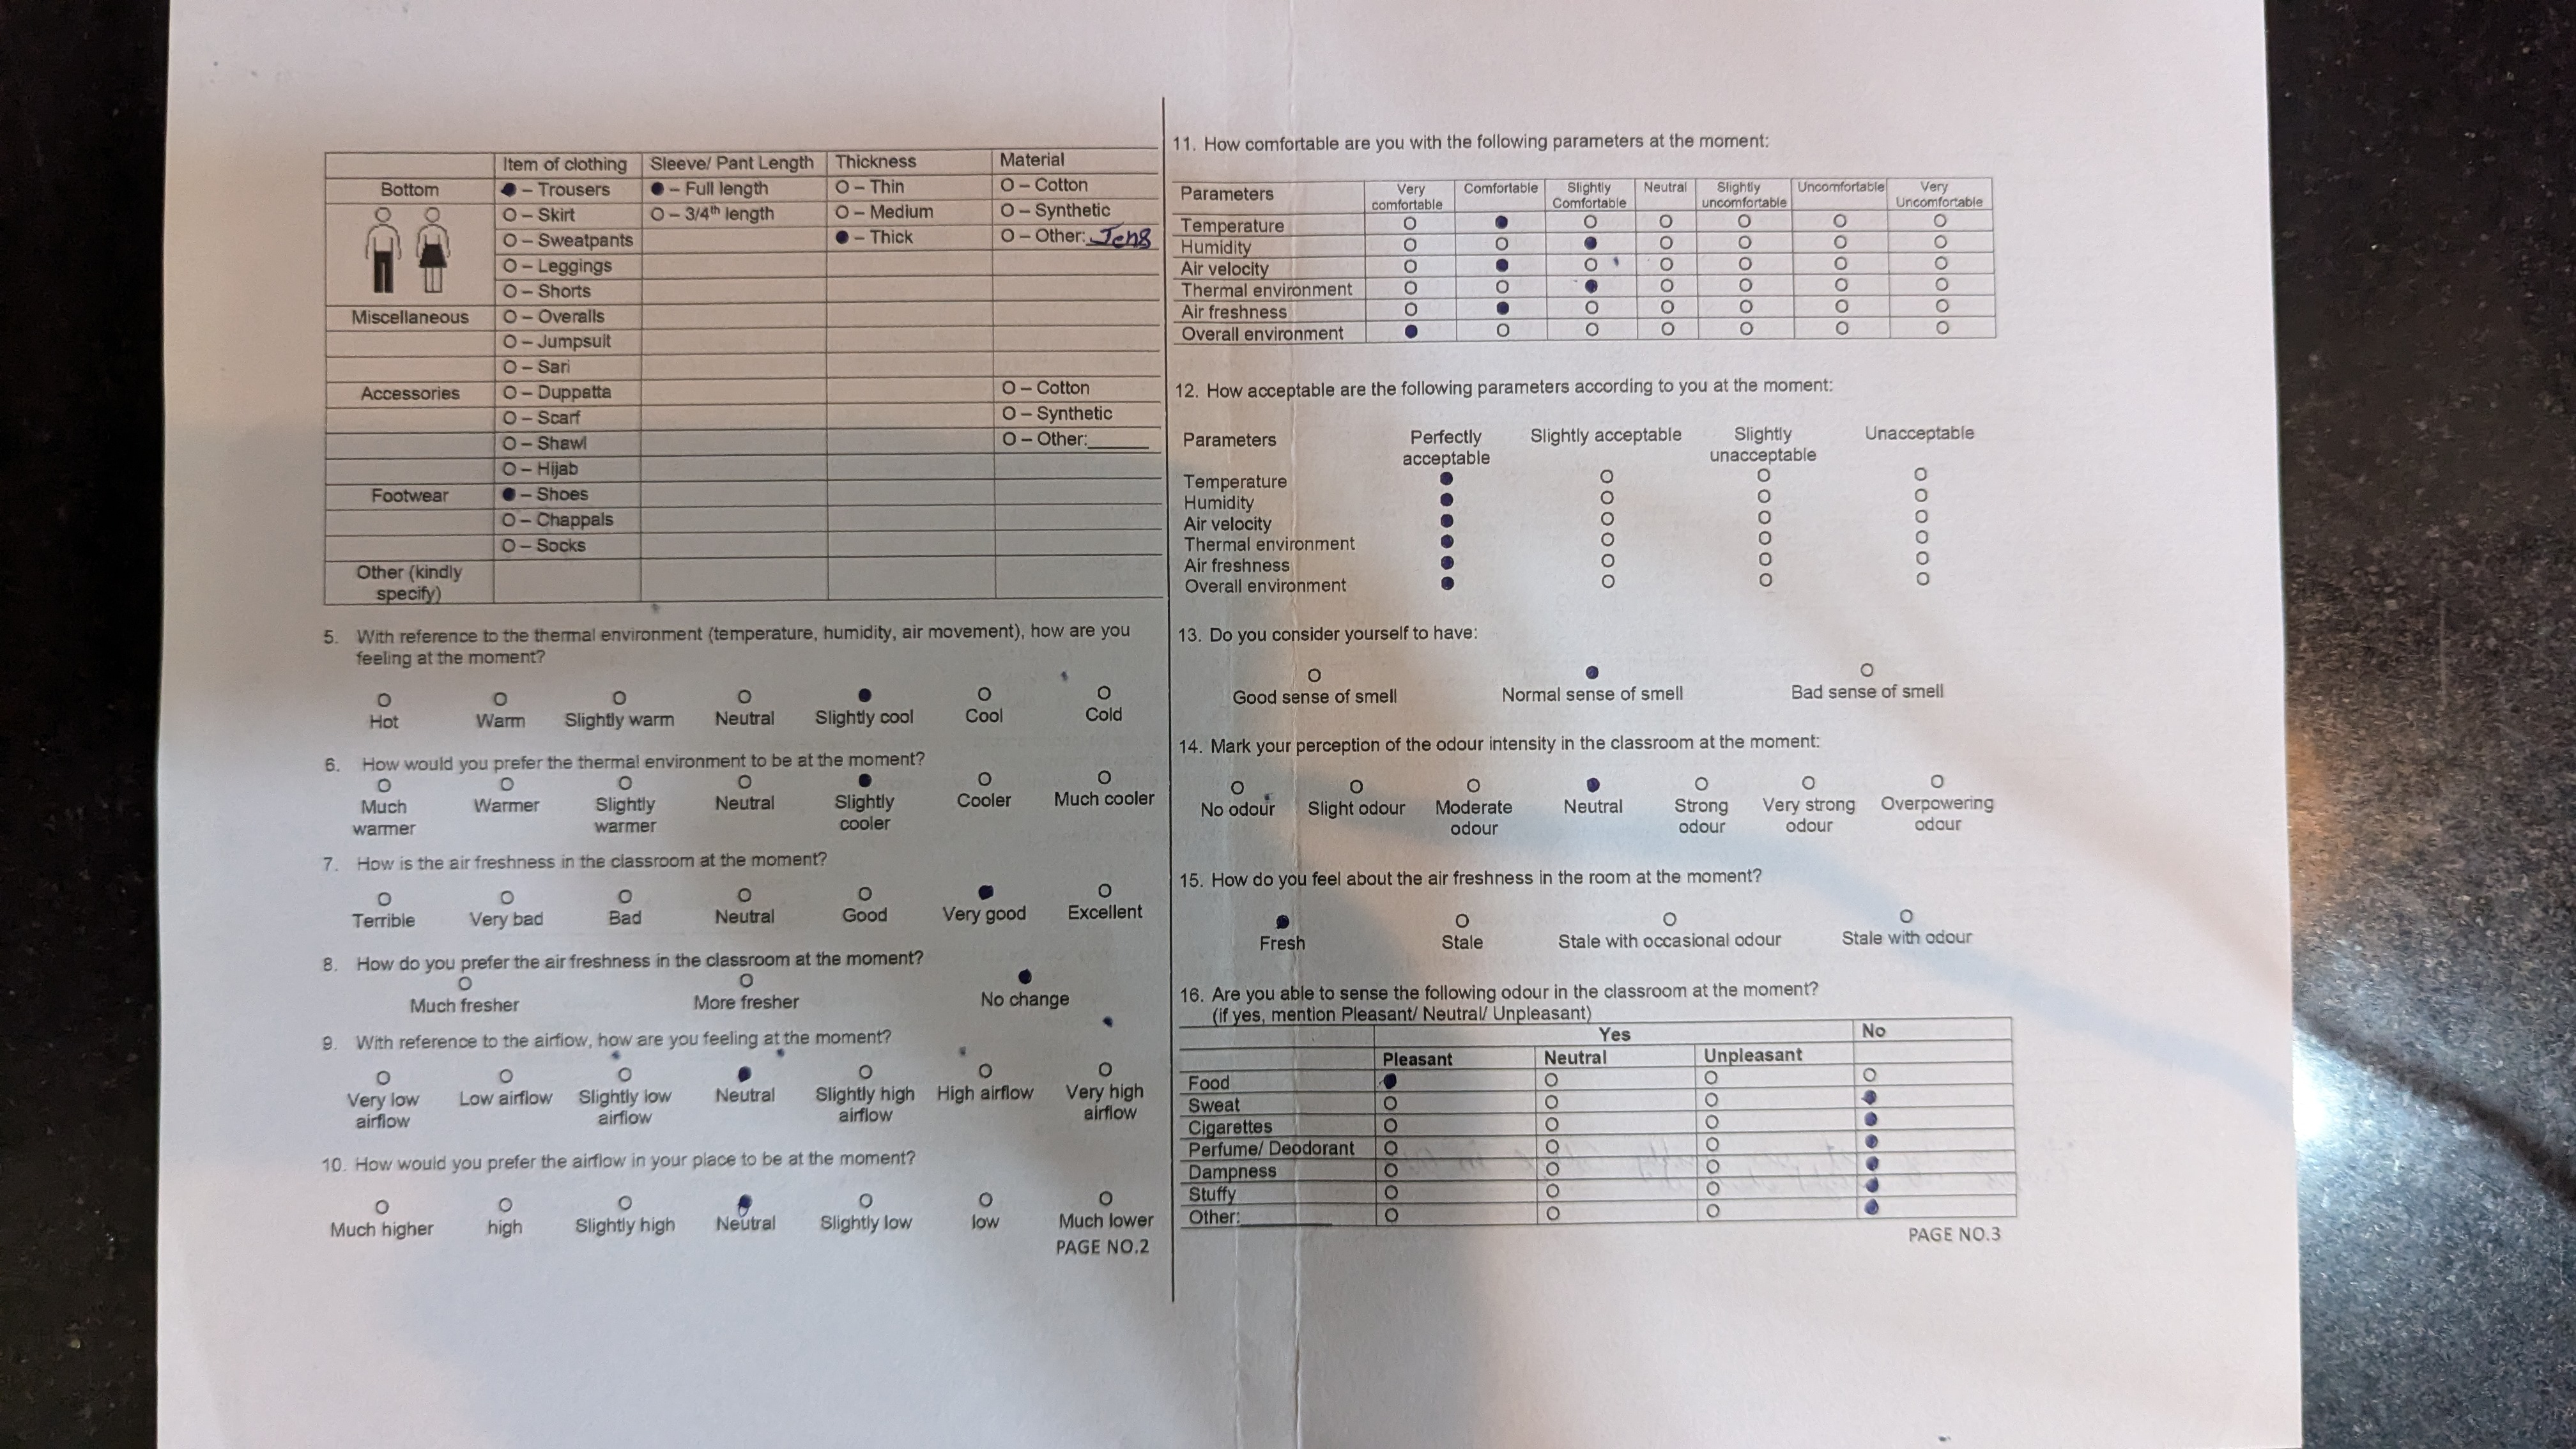 Item of clothing Sleeve/ Pant Length Thickness Material
Bottom ● – Trousers ● – Full length O – Thin O – Cotton
O – Skirt O – 3/4th length O – Medium O – Synthetic
O – Sweatpants ● – Thick O – Other:
O – Leggings
O – Shorts
Miscellaneous O – Overalls
O – Jumpsuit
O – Sari
Accessories O – Duppatta O – Cotton
O – Scarf O – Synthetic
O – Shawl O – Other:______
O – Hijab
Footwear ● – Shoes
O – Chappals
O – Socks
Other (kindly
specify)
5. With reference to the thermal environment (temperature, humidity, air movement), how are you
feeling at the moment?
O O O O ● O O
Hot Warm Slightly warm Neutral Slightly cool Cool Cold
6. How would you prefer the thermal environment to be at the moment?
O O O O ● O O
Much Warmer Slightly Neutral Slightly Cooler Much cooler
warmer warmer cooler
7. How is the air freshness in the classroom at the moment?
O O O O O ● O
Terrible Very bad Bad Neutral Good Very good Excellent
8. How do you prefer the air freshness in the classroom at the moment?
O O ●
Much fresher More fresher No change
9. With reference to the airflow, how are you feeling at the moment?
O O O ● O O O
Very low Low airflow Slightly low Neutral Slightly high High airflow Very high
airflow airflow airflow airflow
10. How would you prefer the airflow in your place to be at the moment?
O O O ● O O O
Much higher high Slightly high Neutral Slightly low low Much lower
PAGE NO.2
11. How comfortable are you with the following parameters at the moment:
Parameters Very Comfortable Slightly Neutral Slightly Uncomfortable Very
comfortable Comfortable uncomfortable Uncomfortable
Temperature O ● O O O O O
Humidity O O ● O O O O
Air velocity O ● O O O O O
Thermal environment O O ● O O O O
Air freshness O ● O O O O O
Overall environment ● O O O O O O
12. How acceptable are the following parameters according to you at the moment:
Parameters Perfectly Slightly acceptable Slightly Unacceptable
acceptable unacceptable
Temperature ● O O O
Humidity ● O O O
Air velocity ● O O O
Thermal environment ● O O O
Air freshness ● O O O
Overall environment ● O O O
13. Do you consider yourself to have:
O ● O
Good sense of smell Normal sense of smell Bad sense of smell
14. Mark your perception of the odour intensity in the classroom at the moment:
O O O ● O O O
No odour Slight odour Moderate Neutral Strong Very strong Overpowering
odour odour odour odour
15. How do you feel about the air freshness in the room at the moment?
● O O O
Fresh Stale Stale with occasional odour Stale with odour
16. Are you able to sense the following odour in the classroom at the moment?
(if yes, mention Pleasant/ Neutral/ Unpleasant)
Yes No
Pleasant Neutral Unpleasant
Food ● O O O
Sweat O O O ●
Cigarettes O O O ●
Perfume/ Deodorant O O O ●
Dampness O O O ●
Stuffy O O O ●
Other:________ O O O ●
PAGE NO.3